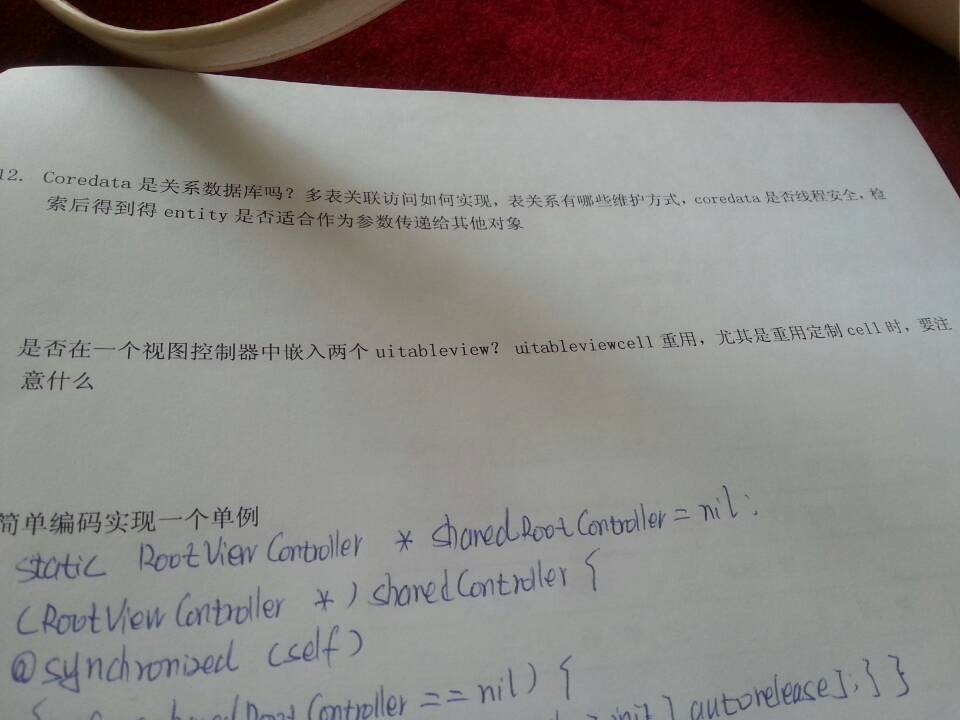 12. Coredata 是关系数据库吗？多表关联访问如何实现，表关系有哪些维护方式，coredata 是否线程安全，检
索后得到得 entity 是否适合作为参数传递给其他对象
是否在一个视图控制器中嵌入两个 uitableview？uitableviewcell 重用，尤其是重用定制 cell 时，要注
意什么
简单编码实现一个单例
static RootViewController * sharedRootController = nil;
(RootViewController *) sharedController {
@synchronized (self)
RootController == nil) { init] autorelease]; } }